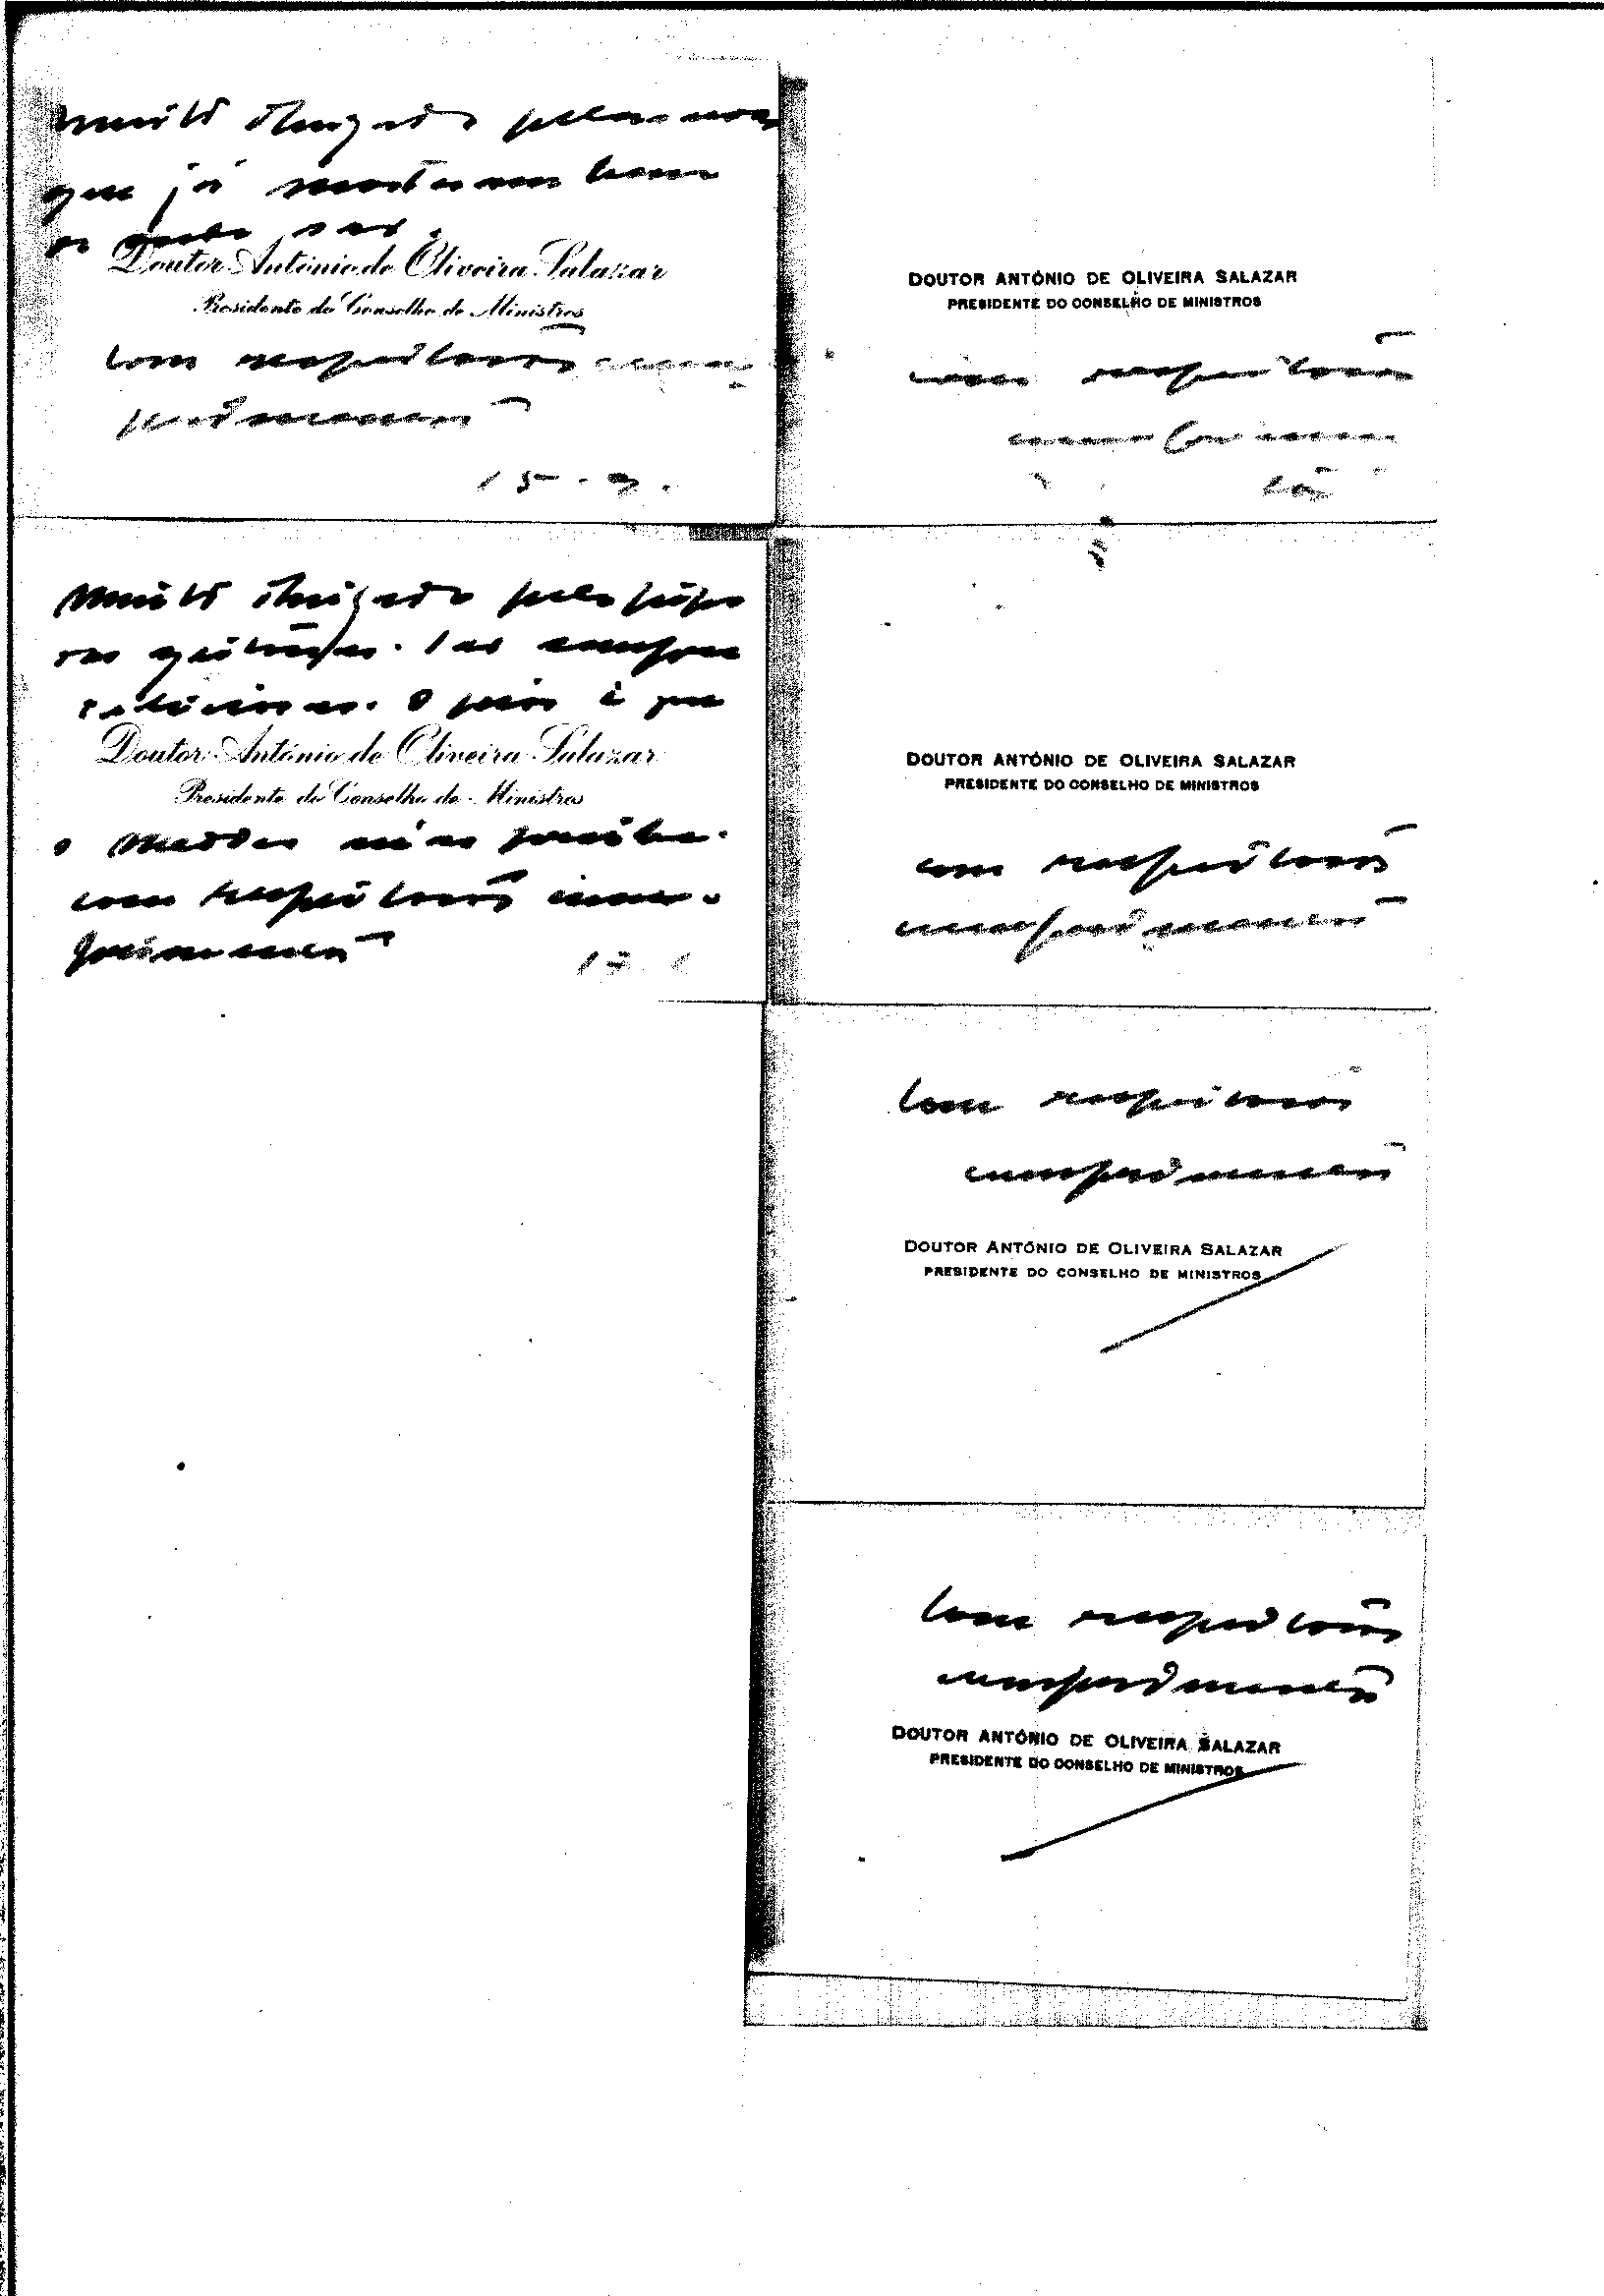 Muito obrigado pelas uvas
que já mostraram bem
Doutor António de Oliveira Salazar
Presidente do Conselho de Ministros
Com respeitosos cum-
primentos
15 - 9.
Muito obrigado pelo
. São sempre
. O pior é que
Doutor António de Oliveira Salazar
Presidente do Conselho de Ministros
o não.
Com respeitosos cum-
primentos
DOUTOR ANTÓNIO DE OLIVEIRA SALAZAR
PRESIDENTE DO CONSELHO DE MINISTROS
com respeitosos
cumprimen-
tos
DOUTOR ANTÓNIO DE OLIVEIRA SALAZAR
PRESIDENTE DO CONSELHO DE MINISTROS
com respeitosos
cumprimentos
Com respeitosos
cumprimentos
DOUTOR ANTÓNIO DE OLIVEIRA SALAZAR
PRESIDENTE DO CONSELHO DE MINISTROS
Com respeitosos
cumprimentos
DOUTOR ANTÓNIO DE OLIVEIRA SALAZAR
PRESIDENTE DO CONSELHO DE MINISTROS